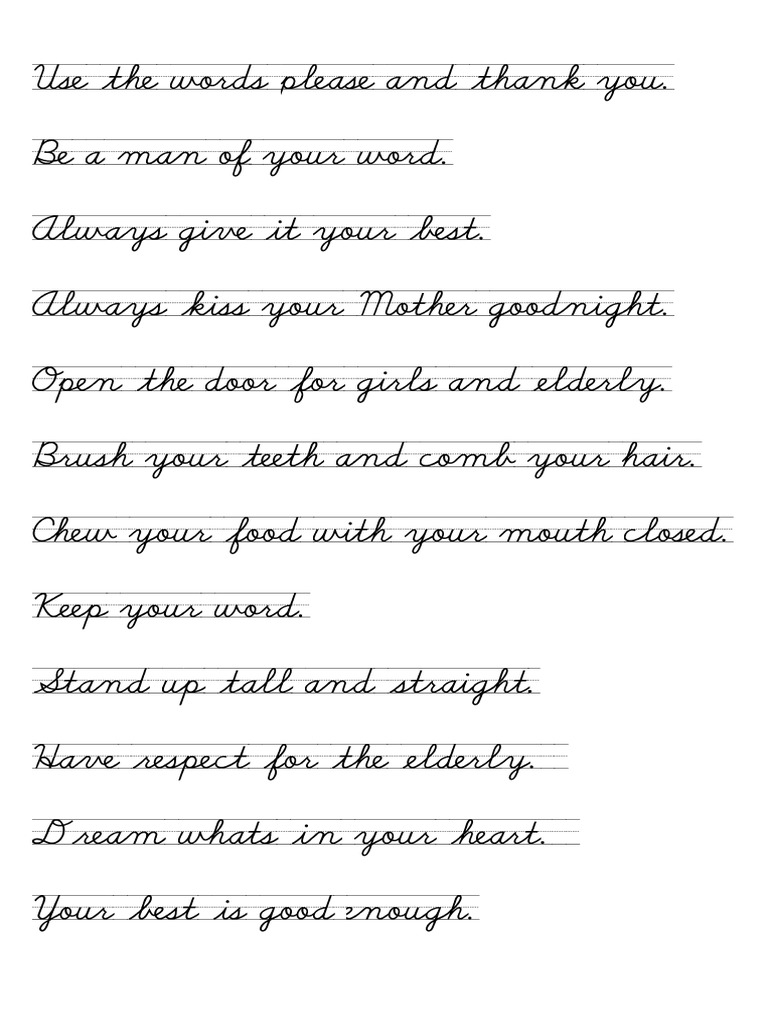 Use the words please and thank you.
Be a man of your word.
Always give it your best.
Always kiss your Mother goodnight.
Open the door for girls and elderly.
Brush your teeth and comb your hair.
Chew your food with your mouth closed.
Keep your word.
Stand up tall and straight.
Have respect for the elderly.
Dream whats in your heart.
Your best is good enough.